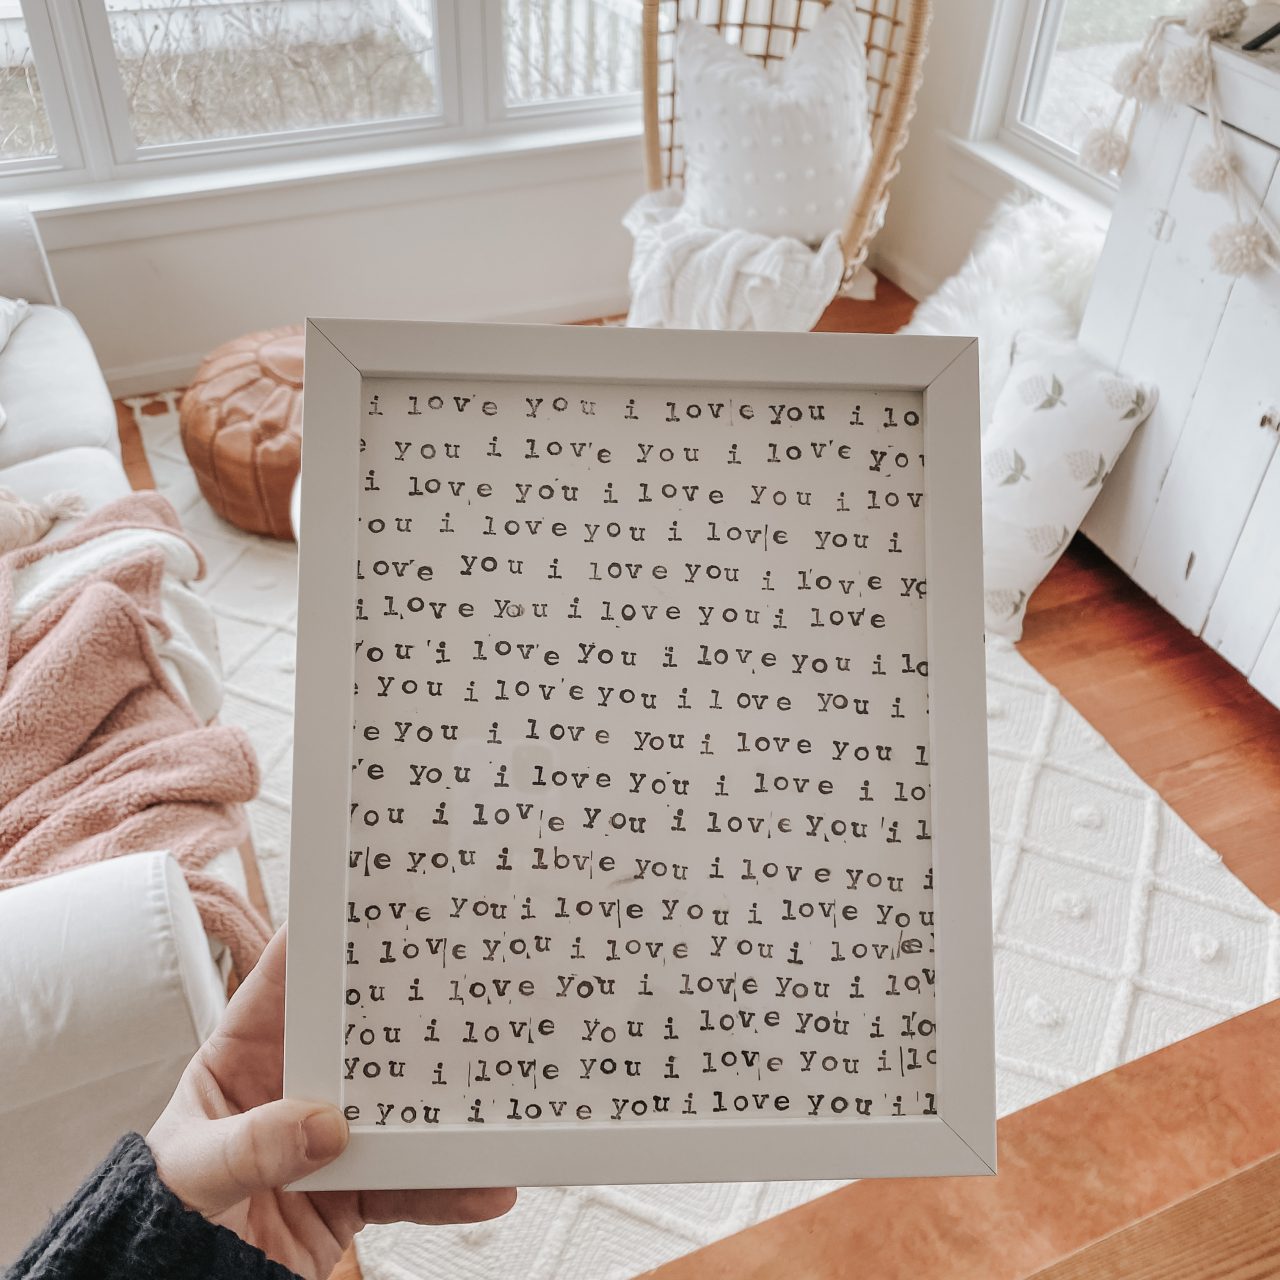 i love you i love you i lo
you i love you i love you
i love you i love you i lov
ou i love you i love you i
love you i love you i love yo
i love you i love you i love
you i love you i love you i lo
you i love you i love you i
e you i love you i love you l
e you i love you i love i lo
you i love you i love you i l
ve you i love you i love you i
love you i love you i love you
i love you i love you i love
ou i love you i love you i lov
you i love you i love you i lo
you i love you i love you i lo
e you i love you i love you i l